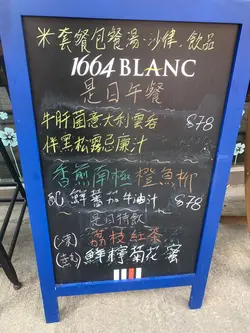 米套餐包餐湯.沙律.飲品
1664 BLANC
是日午餐
牛肝菌意大利雲吞 $78
伴黑松露忌廉汁
香煎南極橙魚柳
配鮮蕃加牛油汁 $78
是日特飲
(凍) 荔枝紅茶
(熱) 鮮檸菊花蜜